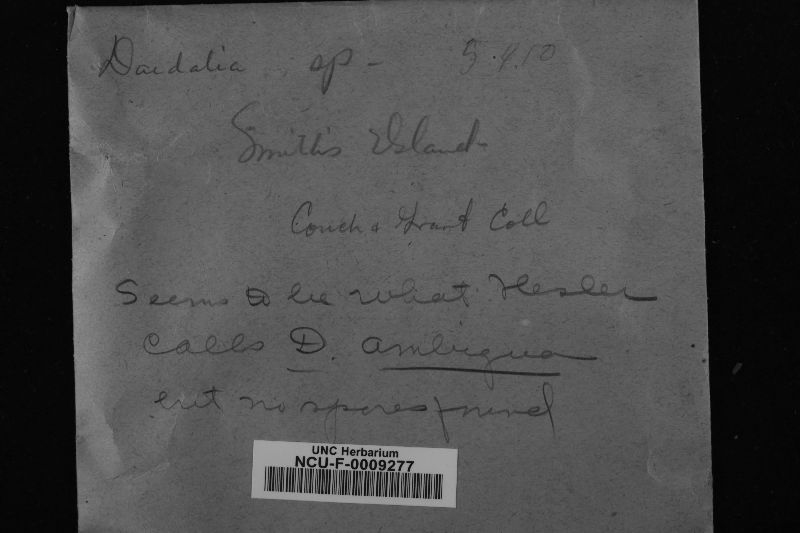 Daedalia sp - 5.9.10
Smith's Island
Couch & Grant Coll
Seems to be what Hesler
calls D. ambigua
but no spores found
UNC Herbarium
NCU-F-0009277